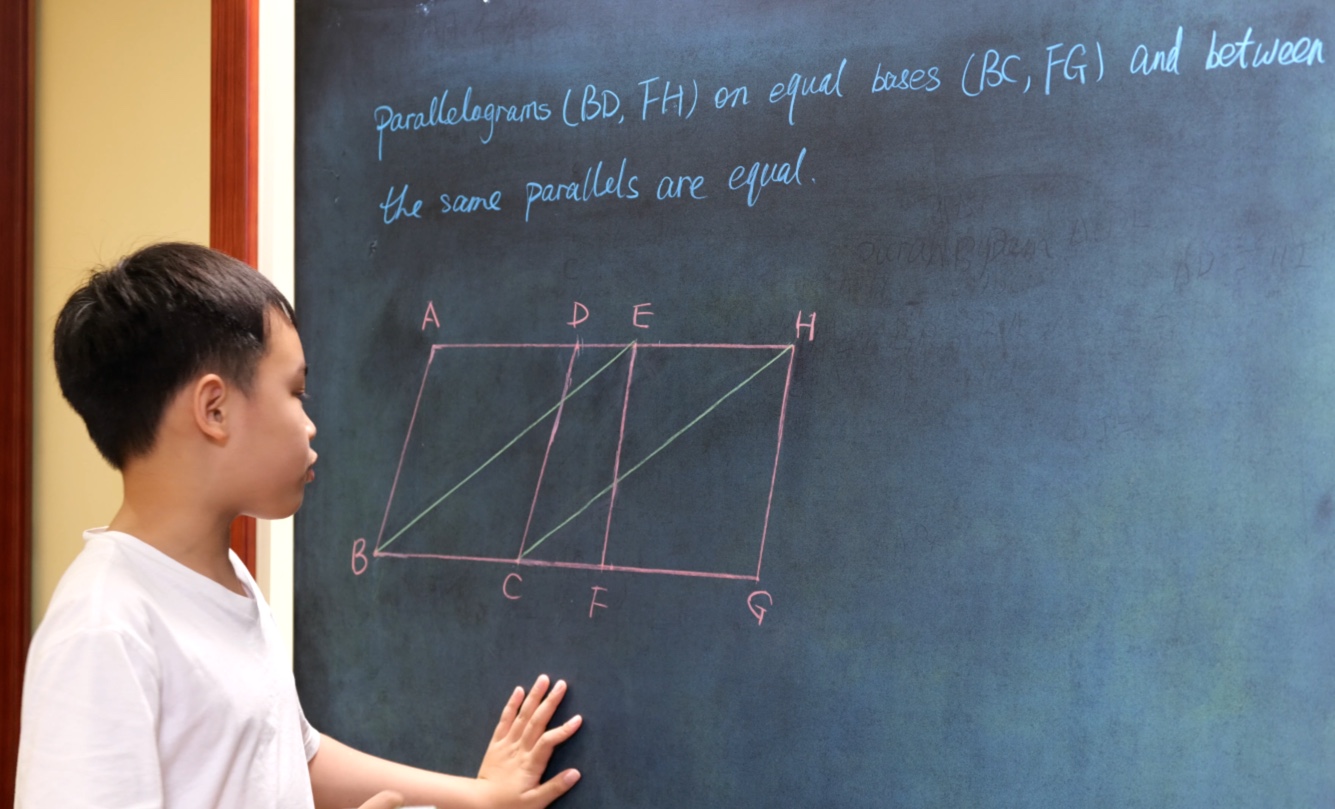 Parallelograms (BD, FH) on equal bases (BC, FG) and between
the same parallels are equal.
A D E H
B
C F G